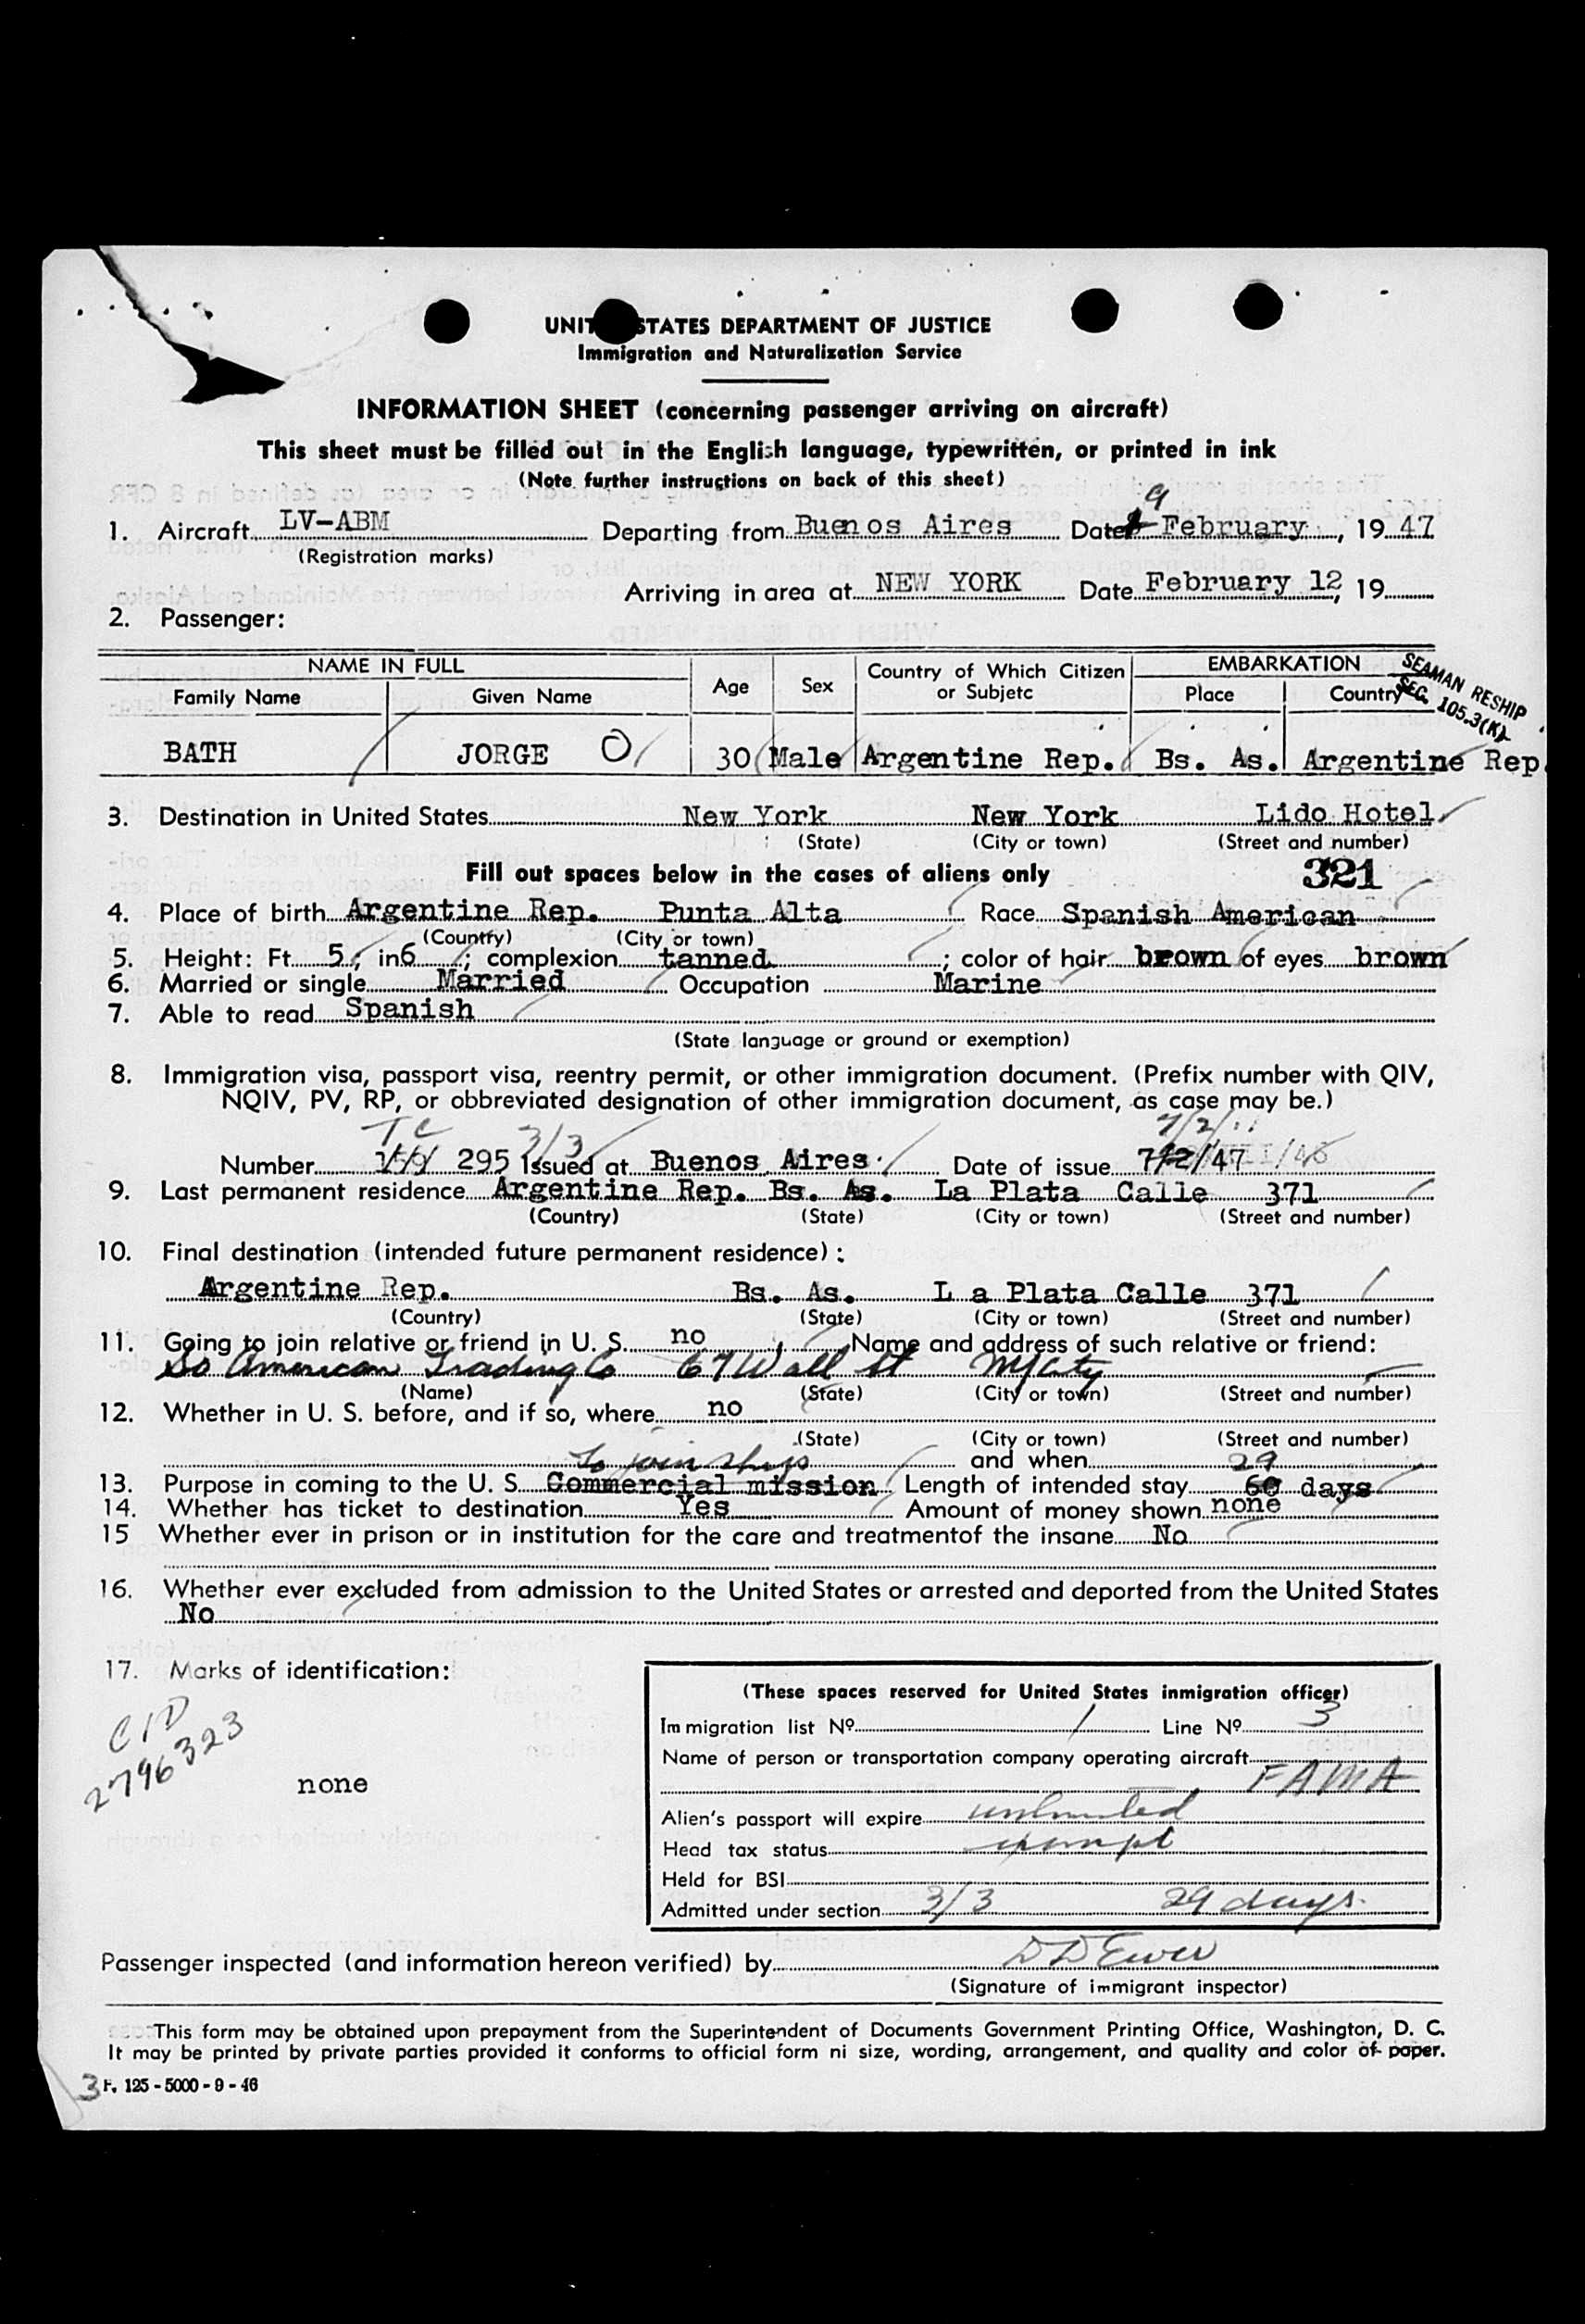 UNIT STATES DEPARTMENT OF JUSTICE
Immigration and Naturalization Service
INFORMATION SHEET (concerning passenger arriving on aircraft)
This sheet must be filled out in the English language, typewritten, or printed in ink
(Note further instructions on back of this sheet)
9
1. Aircraft LV-ABM Departing from Buenos Aires Date February, 19 47
(Registration marks)
Arriving in area at NEW YORK Date February 12, 19
2. Passenger:
NAME IN FULL Age Sex Country of Which Citizen or Subjetc EMBARKATION
Family Name Given Name Place Country
SEAMAN RESHIP
SEC. 105.3(K)
BATH JORGE O 30 Male Argentine Rep. Bs. As. Argentine Rep.
3. Destination in United States New York New York Lido Hotel
(State) (City or town) (Street and number)
Fill out spaces below in the cases of aliens only 321
4. Place of birth Argentine Rep. Punta Alta Race Spanish American
(Country) (City or town)
5. Height: Ft. 5; in 6; complexion tanned; color of hair brown of eyes brown
6. Married or single Married Occupation Marine
7. Able to read Spanish
(State language or ground or exemption)
8. Immigration visa, passport visa, reentry permit, or other immigration document. (Prefix number with QIV,
NQIV, PV, RP, or obbreviated designation of other immigration document, as case may be.)
TC 3/3 7/2/
Number 295 Issued at Buenos Aires. Date of issue 7/2/47
9. Last permanent residence Argentine Rep. Bs. As. La Plata Calle 371
(Country) (State) (City or town) (Street and number)
10. Final destination (intended future permanent residece):
Argentine Rep. Bs. As. L a Plata Calle 371
(Country) (State) (City or town) (Street and number)
11. Going to join relative or friend in U. S. no, Name and address of such relative or friend:
So American Trading Co 67 Wall St NYCity
(Name) (State) (City or town) (Street and number)
12. Whether in U. S. before, and if so, where no
(State) (City or town) (Street and number)
To join ships and when 29
13. Purpose in coming to the U. S. Commercial mission Length of intended stay 60 days
14. Whether has ticket to destination Yes Amount of money shown none
15 Whether ever in prison or in institution for the care and treatmentof the insane No
16. Whether ever excluded from admission to the United States or arrested and deported from the United States
No
17. Marks of identification:
CID
2796323
none
(These spaces reserved for United States inmigration officer)
Immigration list Nº 1 Line Nº 3
Name of person or transportation company operating aircraft
FAMA
Alien's passport will expire unlimited
Head tax status exempt
Held for BSI
Admitted under section 3/3 29 days.
Passenger inspected (and information hereon verified) by D D Ewer
(Signature of immigrant inspector)
This form may be obtained upon prepayment from the Superintendent of Documents Government Printing Office, Washington, D. C.
It may be printed by private parties provided it conforms to official form ni size, wording, arrangement, and quality and color of paper.
3 F. 125 - 5000 - 9 - 46